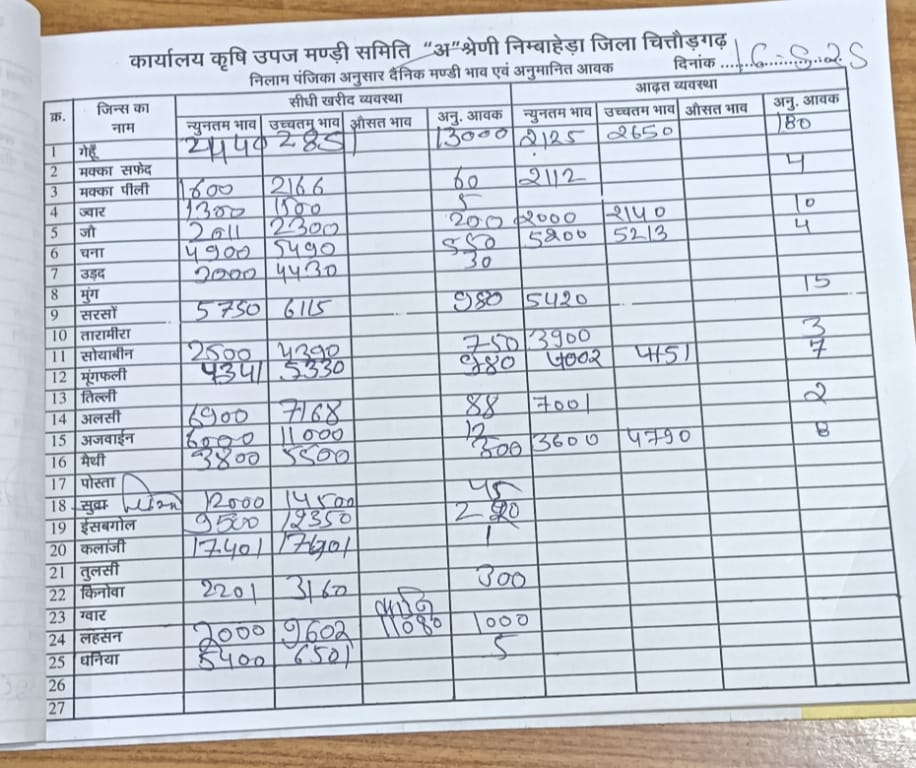 कार्यालय कृषि उपज मण्डी समिति "अ" श्रेणी निम्बाहेड़ा जिला चित्तौड़गढ़
निलाम पंजिका अनुसार दैनिक मण्डी भाव एवं अनुमानित आवक दिनांक 16-5-25
क्र. जिन्स का नाम सीधी खरीद व्यवस्था आढ़त व्यवस्था
न्युनतम भाव उच्चतम भाव औसत भाव अनु. आवक न्युनतम भाव उच्चतम भाव औसत भाव अनु. आवक
1 गेहूँ 2440 2851 13000 2125 2650 180
2 मक्का सफेद
3 मक्का पीली 1600 2166 60 2112 4
4 ज्वार 1300 1500 5
5 जौ 2011 2300 200 2000 2140 10
6 चना 4900 5490 550 5200 5213 4
7 उड़द 2000 4430 30
8 मुंग
9 सरसों 5750 6115 980 5420 15
10 तारामीरा
11 सोयाबीन 2500 4390 750 3900 3
12 मूंगफली 4341 5330 980 4002 4151 7
13 तिल्ली
14 अलसी 6900 7168 88 7001 2
15 अजवाईन 6000 11000 12
16 मैथी 3800 5500 500 3600 4790 8
17 पोस्ता
18 सुवा 12000 14500 45
19 ईसबगोल 9500 12350
20 कलांजी 17401 1
21 तुलसी
22 किनोवा 2201 3160 300
23 ग्वार
24 लहसन 2000 9602 11080 1000
25 धनिया 5400 6501 5
26
27